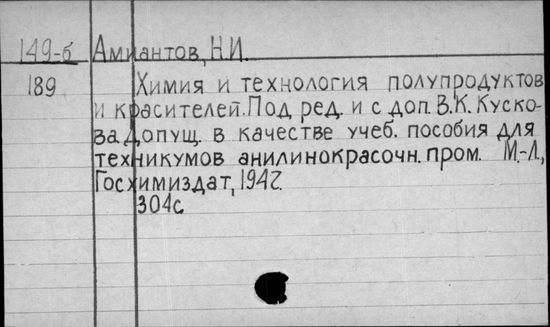 149-б Амиантов, Н.И.
189 Химия и технология полупродуктов
и красителей. Под ред. и с доп. В.К. Куско-
ва Допущ. в качестве учеб. пособия для
техникумов анилинокрасочн. пром. М.-Л.,
Госхимиздат, 1947.
304с.